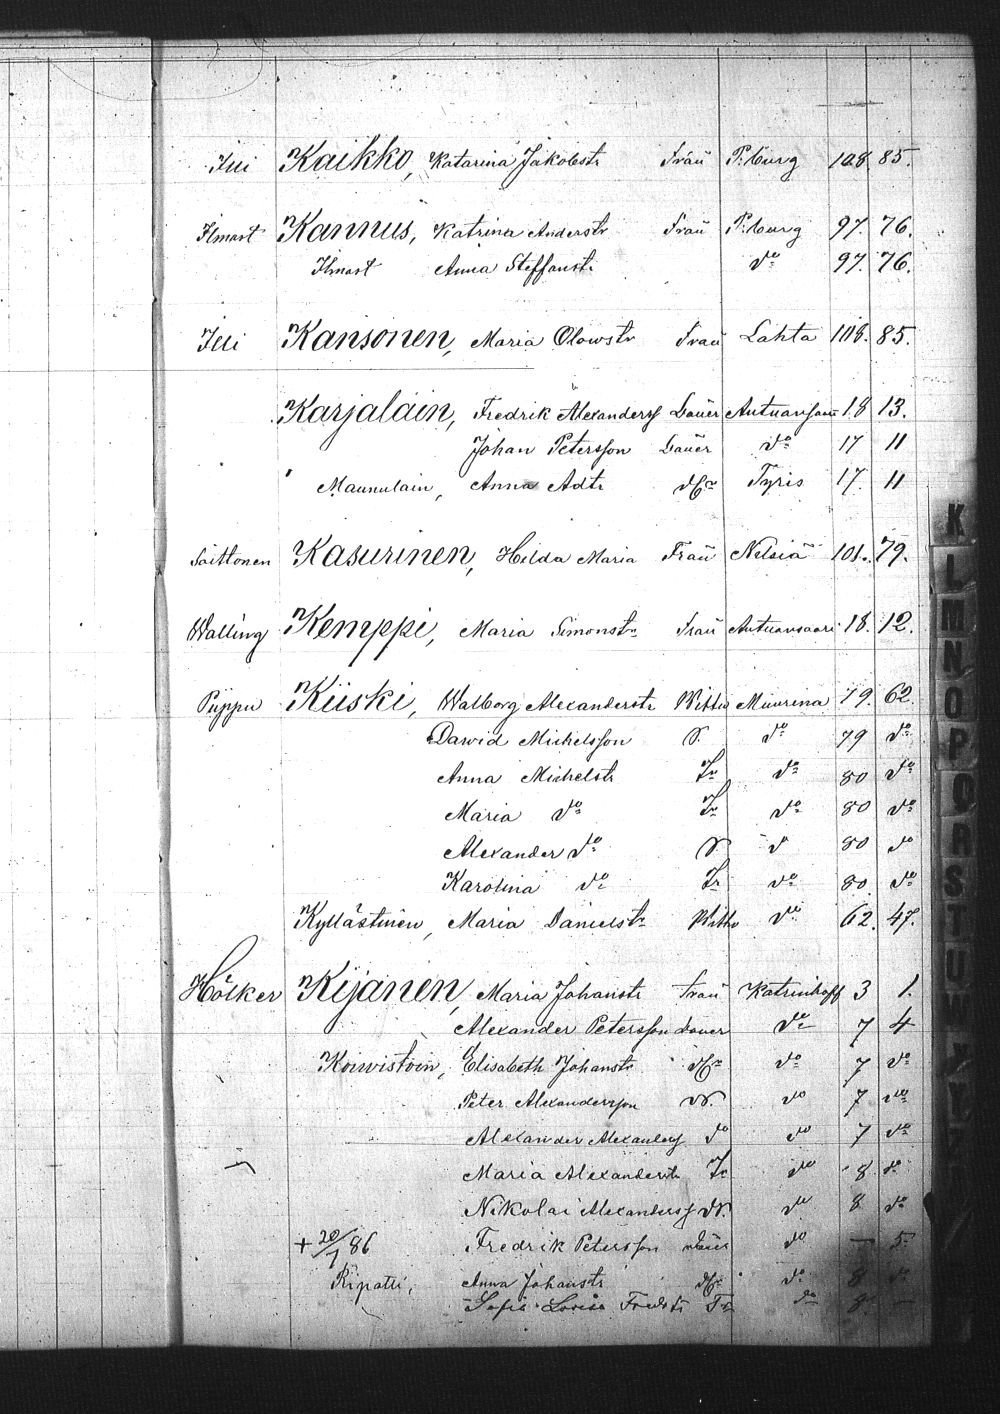 Jui Kaikko, Katarina Jakobstr Frau P:burg 108. 85.
Ilmast Kannus, Katrina Anderstr Frau P:burg 97. 76.
Ilmast Anna Steffanstr do 97. 76.
Jui Kansonen, Maria Olowstr Frau Lahta 108. 85.
Karjalain, Fredrik Alexanderss Bauer 18 13.
Johan Petersson Bauer do 17 11
Maunulain, Anna Adtr Tyris 17. 11
Saittonen Kasurinen, Hilda Maria Frau Nilsiä 101. 79.
Walling Kemppi, Maria Simonstr Frau Antuansaari 18. 12.
Piippu Kiiski, Walborg Alexanderstr Wittw Muurina 79. 62.
Dawid Michelsson S. do 79 do
Anna Michelstr Tr do 80 do
Maria do Tr do 80 do
Alexander do S. do 80 do
Karolina do Tr do 80. do
Kyllästinen, Maria Danielstr Wittw do 62. 47.
Hölker Kijanen, Maria Johanstr Frau Katrinhoff 3 1.
Alexander Petersson Bauer do 7 4
Koiwistoin, Elisabeth Johanstr do 7 do
Peter Alexandersson do 7 do
Alexander Alexanderss do do 7 do
Maria Alexanderstr Tr do 8 do
Nikolai Alexanderss do 8 do
+ 20/7 86 Fredrik Petersson Bauer do — 5
Ripatti, Anna Johanstr do 8 do
Sofia Lovisa Fredrstr Tr do 8.
K
L
M
N
O
P
Q
R
S
T
U